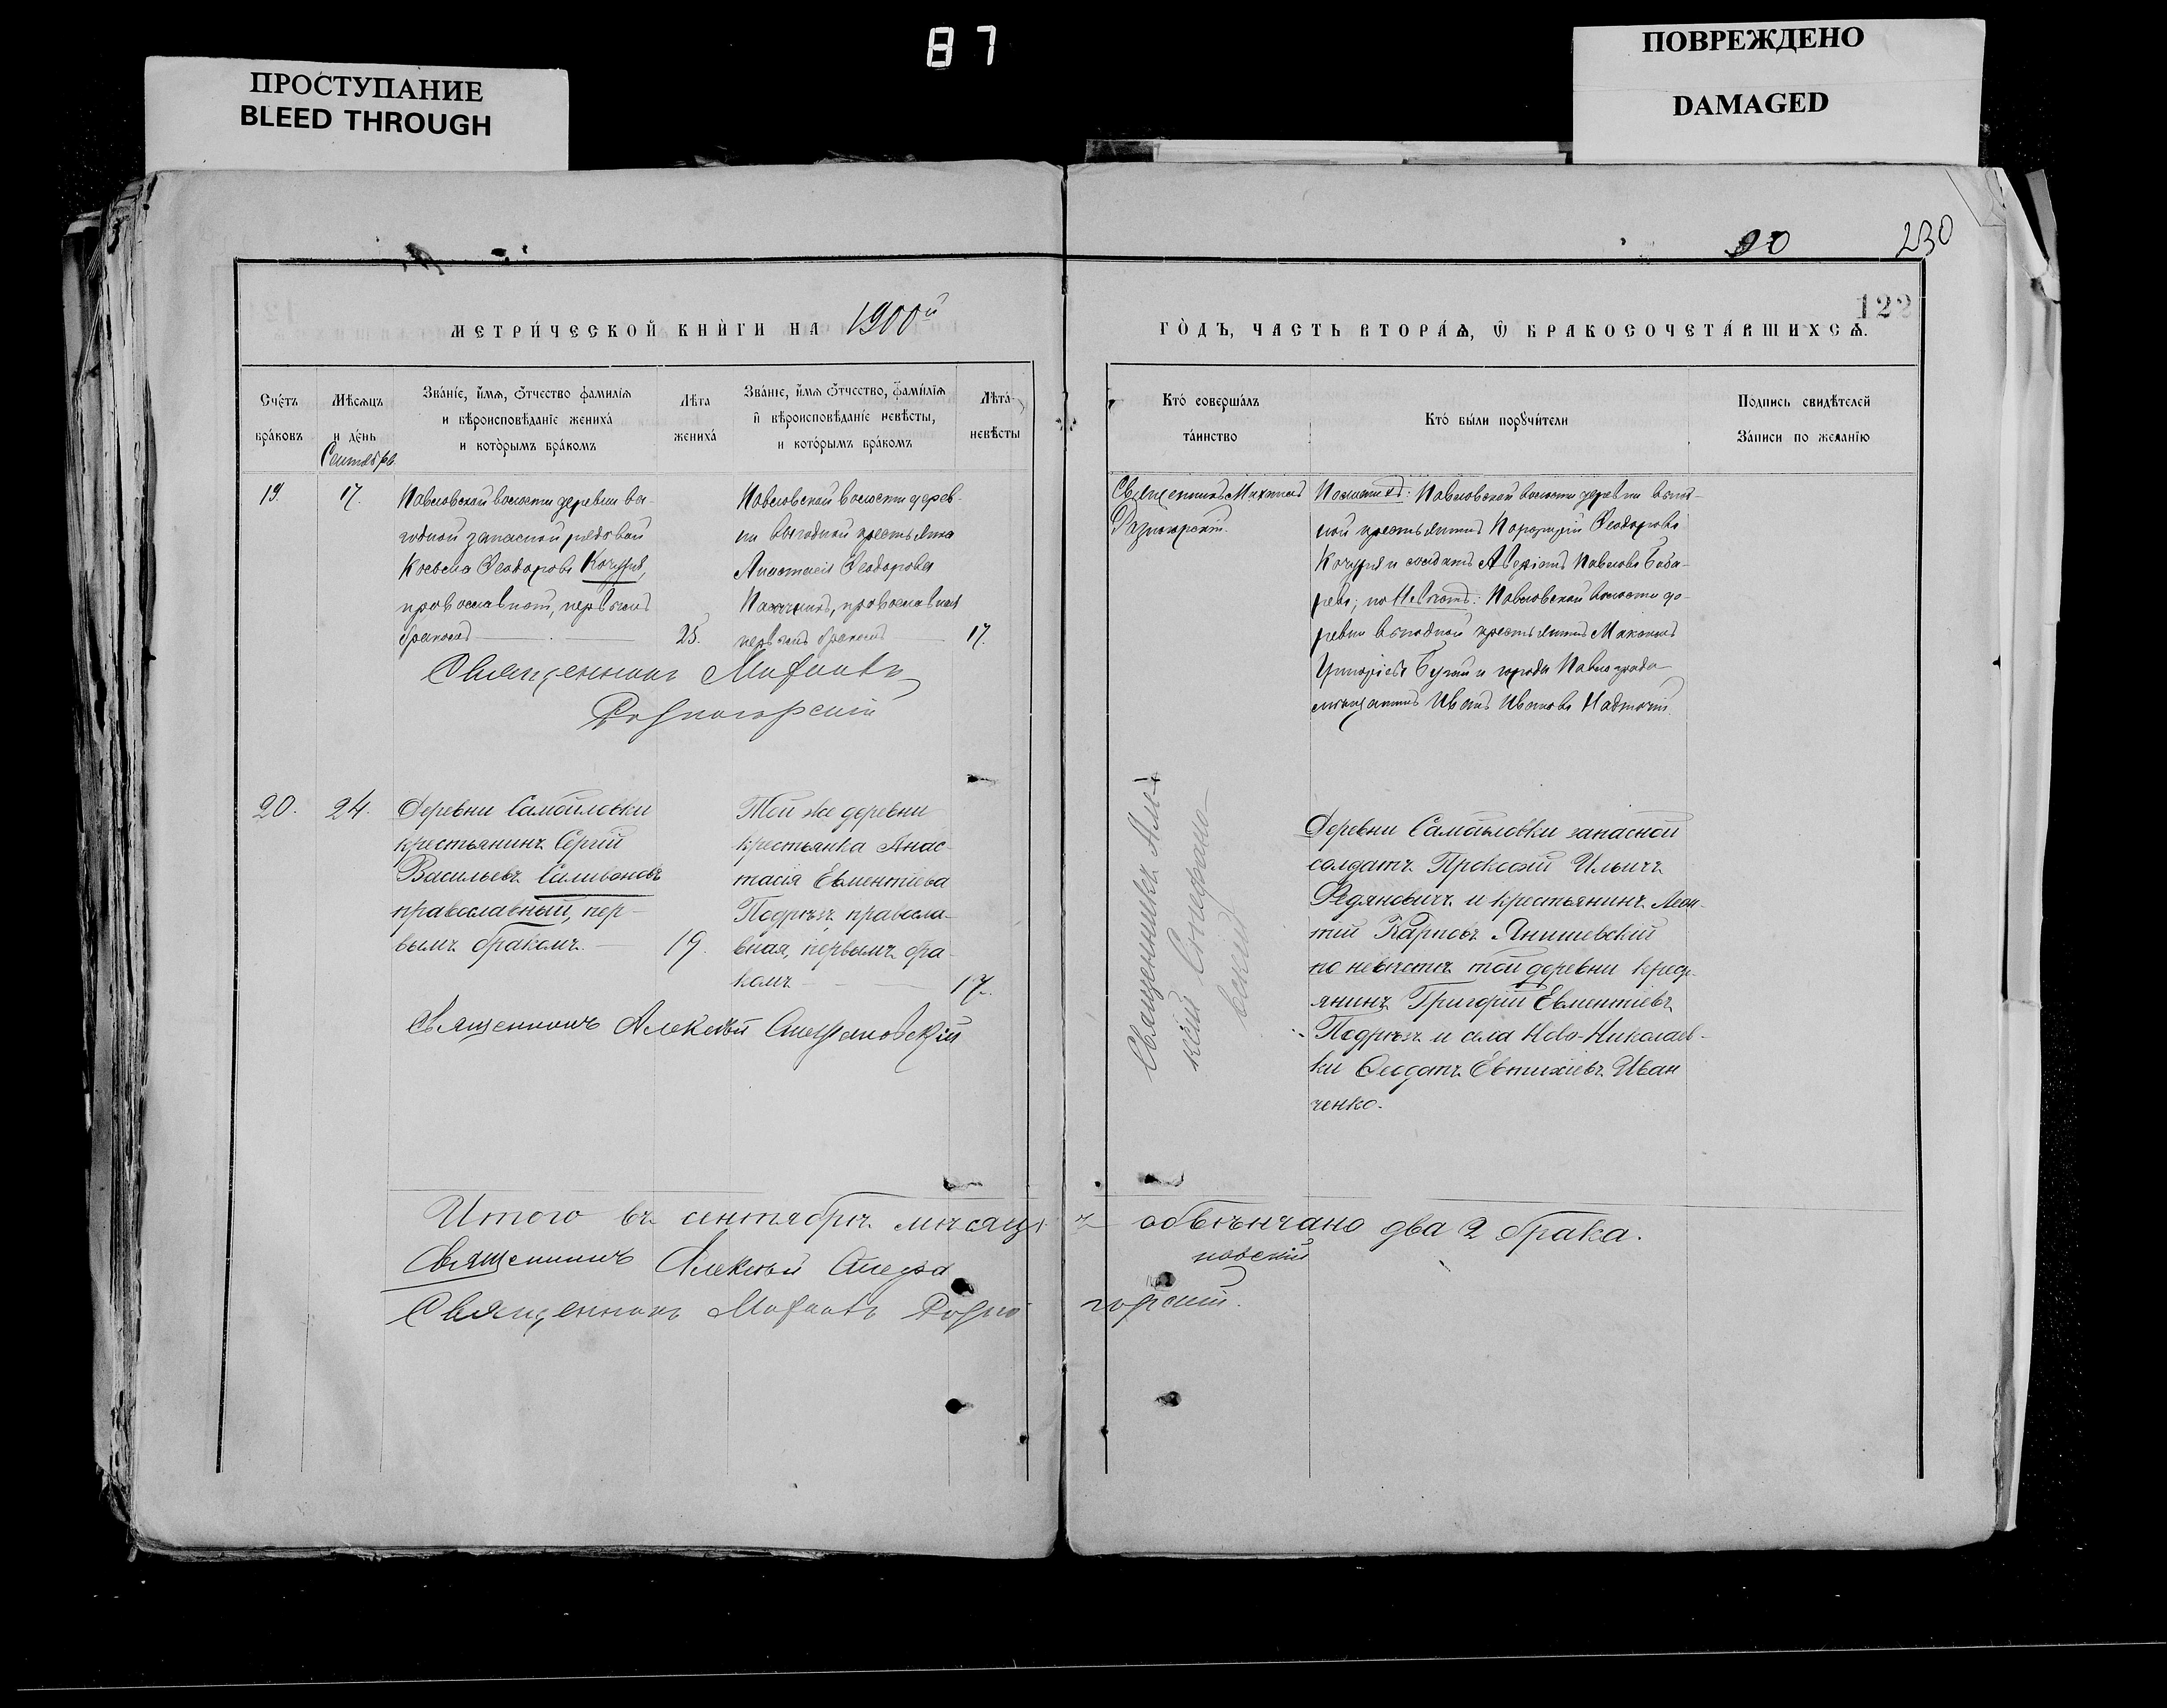 87
ПРОСТУПАНИЕ
BLEED THROUGH
ПОВРЕЖДЕНО
DAMAGED
90
230
122
МЕТРИ́ЧЕСКОЙ КНИ́ГИ НА 1900й
ГО́ДЪ, ЧАСТЬ ВТОРА́Ѧ, Ѿ БРАКОСОЧЕТА́ВШИХСѦ.
Сче́тъ
бра́ковъ
Мѣ́сѧцъ
и де́нь
Сентябрь
Зва́нїе, и́мѧ, ѻ́тчество фамилїѧ
и вѣроисповѣ́данїе жениха́
и кото́рымъ бра́комъ
Лѣ́та
жениха́
Зва́нїе, и́мѧ ѻ́тчество, фами́лїѧ
и вѣроисповѣ́данїе невѣ́сты,
и кото́рымъ бра́комъ
Лѣ́та
невѣ́сты
Кто̀ соверша́лъ
та́инство
Кто̀ бы́ли порꙋчи́тели
По́дпись свидѣ́телей
За́писи по жела́нїю
19.
17.
Павловской волости деревни Вы-
годной запасной рядовой
Косьма Ѳеодоровъ Кочура,
православной, первымъ
бракомъ
25.
Павловской волости дерев-
ни Выгодной крестьянка
Анастасія Ѳеодорова
православная
первымъ бракомъ
17.
Священникъ
Разногорскій
Священникъ
Разногорскій.
По женихѣ: Павловской волости деревни Выгод-
ной крестьянинъ Ѳеодоровъ
Кочура и солдатъ Павловъ Боба-
ревъ; по невѣстѣ: Павловской волости де-
ревни Выгодной крестьянинъ
Григорьевъ Бугай и города Павлограда
мѣщанинъ Иванъ Ивановъ Надточій.
20.
24.
Деревни Самойловки
крестьянинъ Сергій
Васильевъ Селивановъ
православный, пер-
вымъ бракомъ.
19.
Той же деревни
крестьянка Анас-
тасія Евментіева
Подрѣзъ, правосла-
вная, первымъ бра-
комъ
17.
Священникъ Алексѣй Стефановскій
Священникъ Але-
ксѣй Стефано-
вскій
Деревни Самойловки запасной
солдатъ Прокофій Ильичъ
Федяновичъ и крестьянинъ Леон-
тій Карповъ Янишевскій
по невѣстѣ той деревни крест-
янинъ Григорій Евментіевъ
Подрѣзъ и села Ново-Николаев-
ки Ѳеодотъ Евтихіевъ Иван
ченко.
Итого въ сентябрѣ мѣсяцѣ обвѣнчано два 2 брака.
Священникъ Алексѣй Стефановскій
Священникъ Разногорскій.